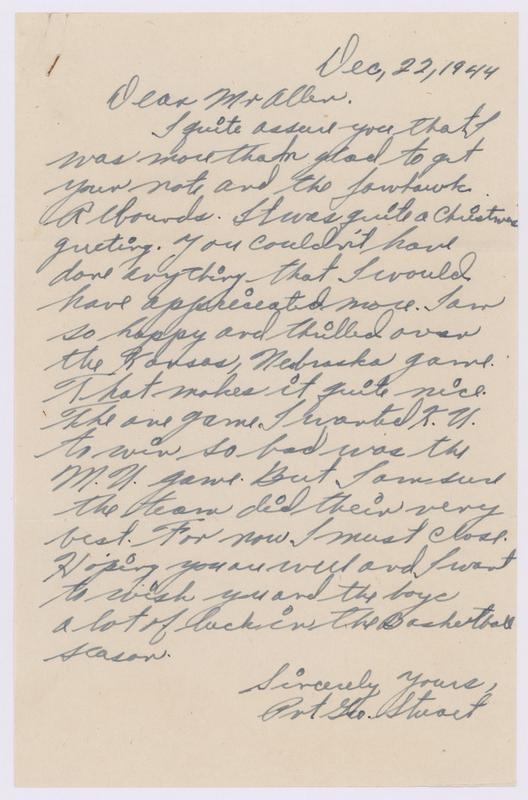 Dec, 22, 1944
Dear Mr Allen.
I quite assure you that I
was more than glad to get
your note and the Jawhawk
Rebounds. It was quite a Christmas
greeting. You couldn't have
done anything that I would
have appreciated more. I am
so happy and thrilled over
the Kansas, Nebraska game.
That makes it quite nice.
The one game I wanted K. U.
to win so bad was the
M. U. game. But I am sure
the team did their very
best. For now I must close.
Hoping you are well and I want
to wish you and the boys
a lot of luck in the Basketball
season.
Sincerely Yours,
Pvt Geo. Stuart